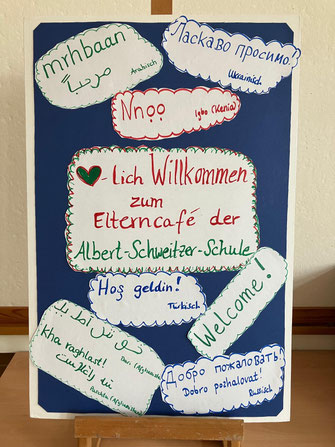 mrhbaan
مرحباً
Arabisch
Ласкаво просимо!
Ukrainisch
Nnọọ
Igbo (Kenia)
♥-lich Willkommen
zum
Elterncafé der
Albert-Schweitzer-Schule
Hoş geldin!
Türkisch
Welcome!
خوش امدید
Dari (Afghanistan)
Kha raghlast!
Paschtu (Afghanistan)
Добро пожаловать!
Dobro poshalovat!
Russisch